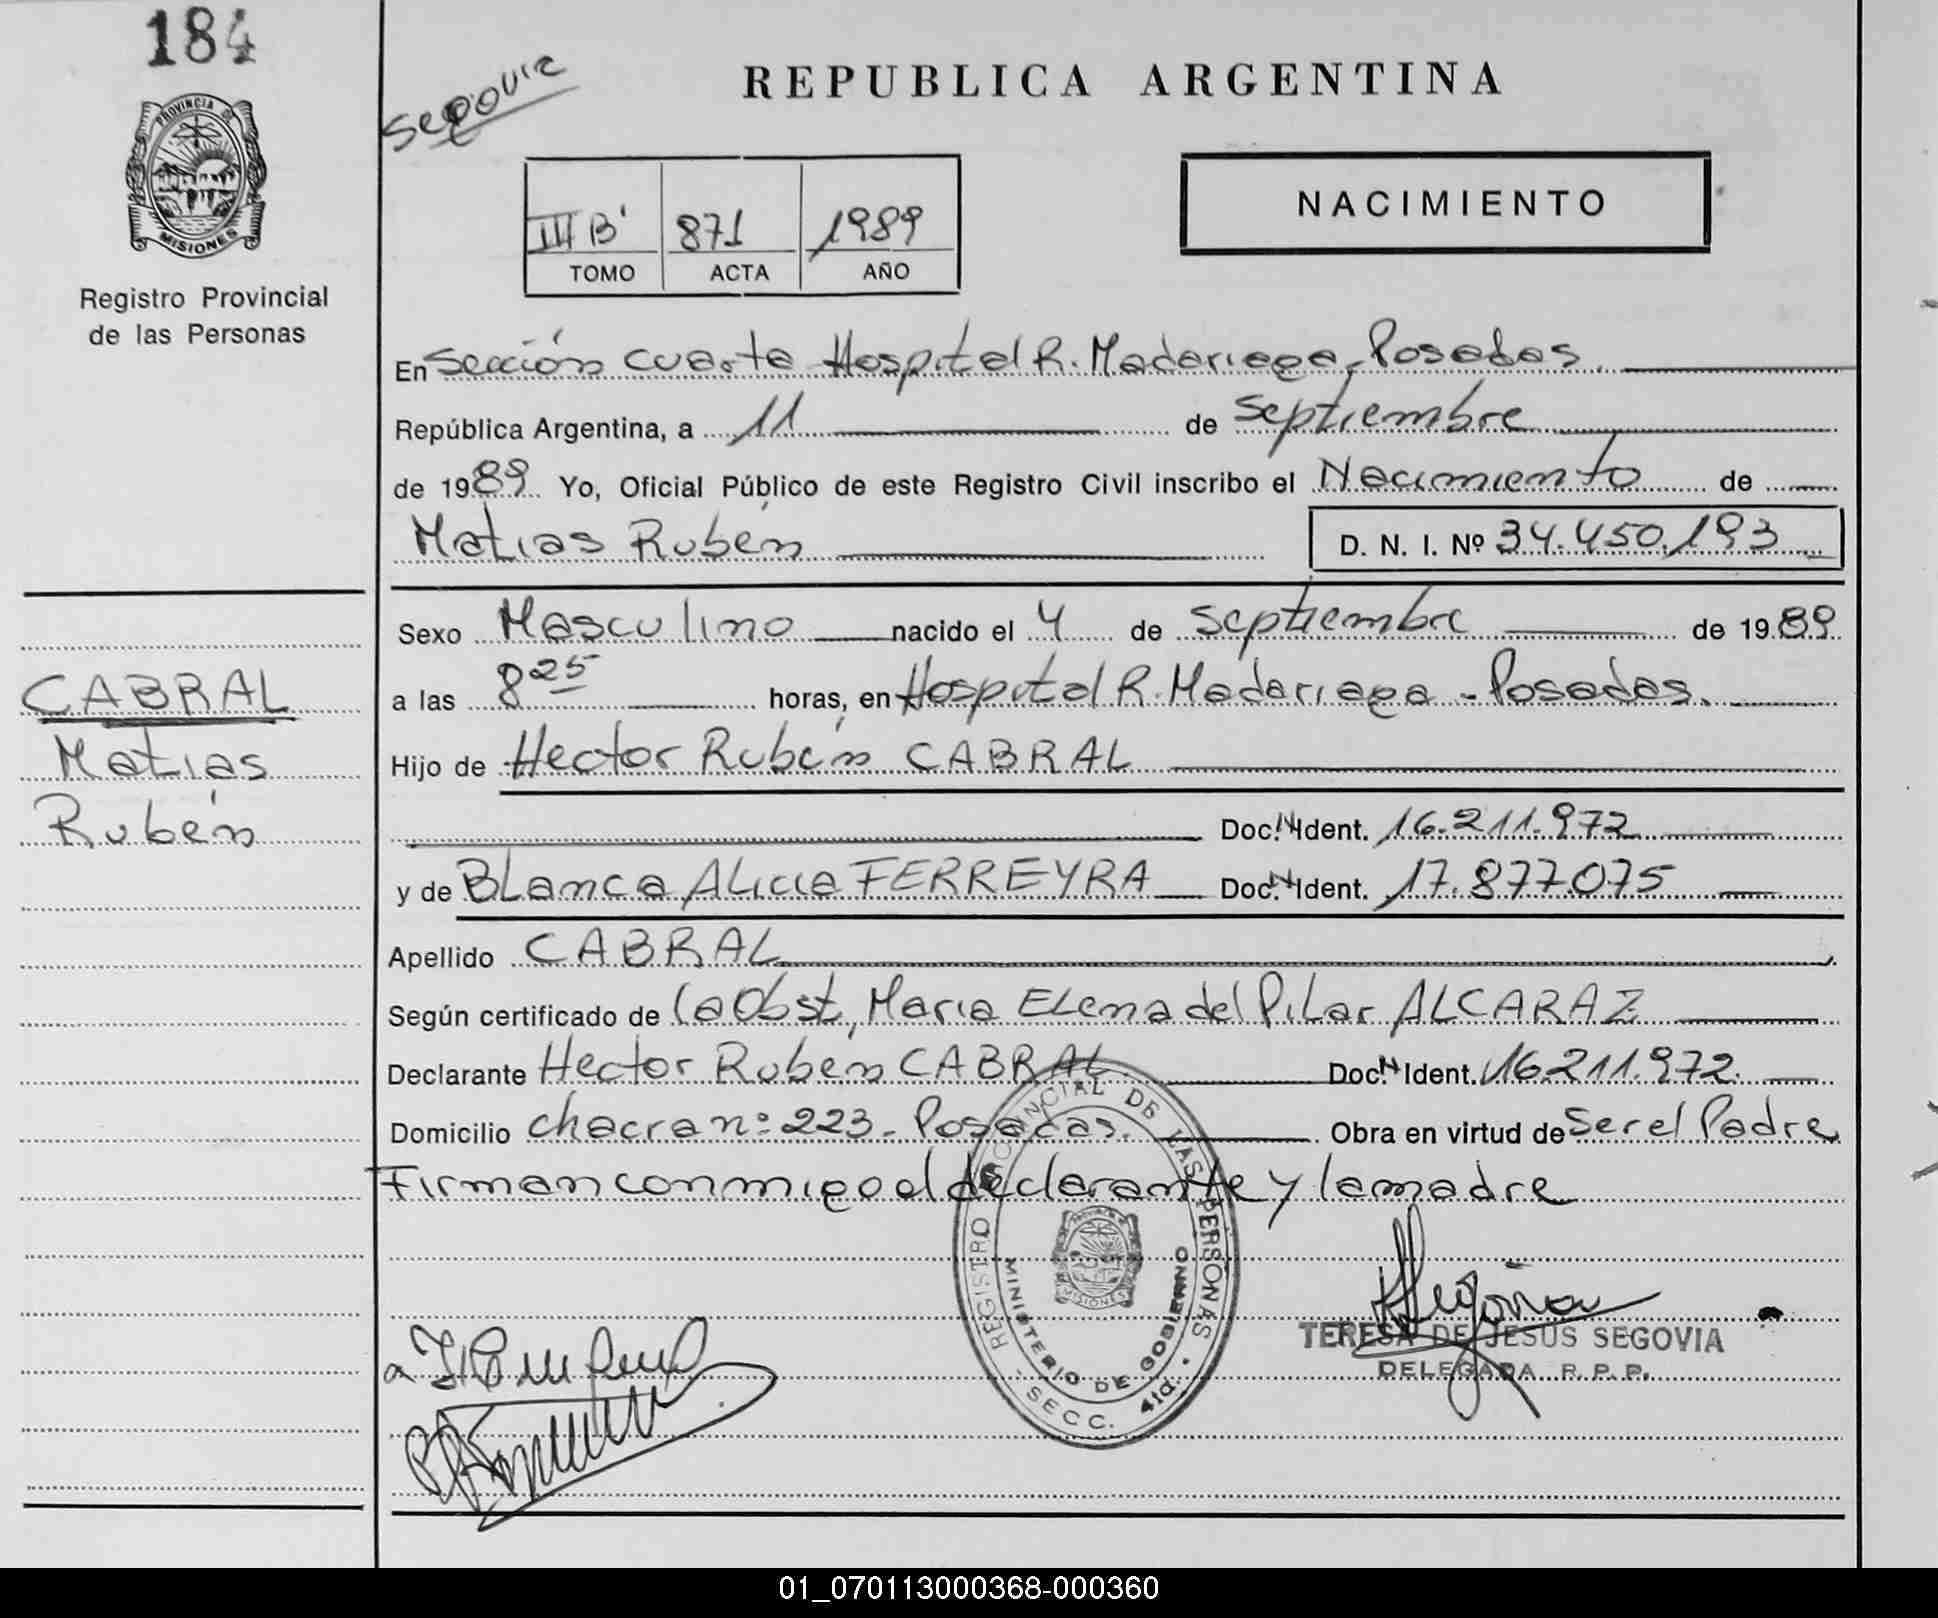 184
PROVINCIA DE
MISIONES
Registro Provincial
de las Personas
Segovia
REPUBLICA ARGENTINA
III B' 871 1989
TOMO ACTA AÑO
NACIMIENTO
En Sección cuarta Hospital R. Madariaga, Posadas.
República Argentina, a 11 de septiembre
de 1989. Yo, Oficial Público de este Registro Civil inscribo el Nacimiento de
Matias Rubén
D. N. I. Nº 34.450.193
Sexo Masculino nacido el 4 de septiembre de 1989
a las 8 25 horas, en Hospital R. Madariaga - Posadas.
Hijo de Hector Rubén CABRAL
Doc. N Ident. 16.211.972
y de Blanca Alicia FERREYRA Doc. N Ident. 17.877.075
Apellido CABRAL
Según certificado de la Obst, Maria Elena del Pilar ALCARAZ
Declarante Hector Ruben CABRAL Doc. N Ident. 16.211.972.
Domicilio chacra nº 223 - Posadas. Obra en virtud de Ser el Padre
Firman conmigo el declarante y la madre
CABRAL
Matias
Rubén
REGISTRO PROVINCIAL DE LAS PERSONAS
MINISTERIO DE GOBIERNO
MISIONES
- SECC. 4ta. -
Segovia
TERESA DE JESUS SEGOVIA
DELEGADA R. P. P.
01_070113000368-000360